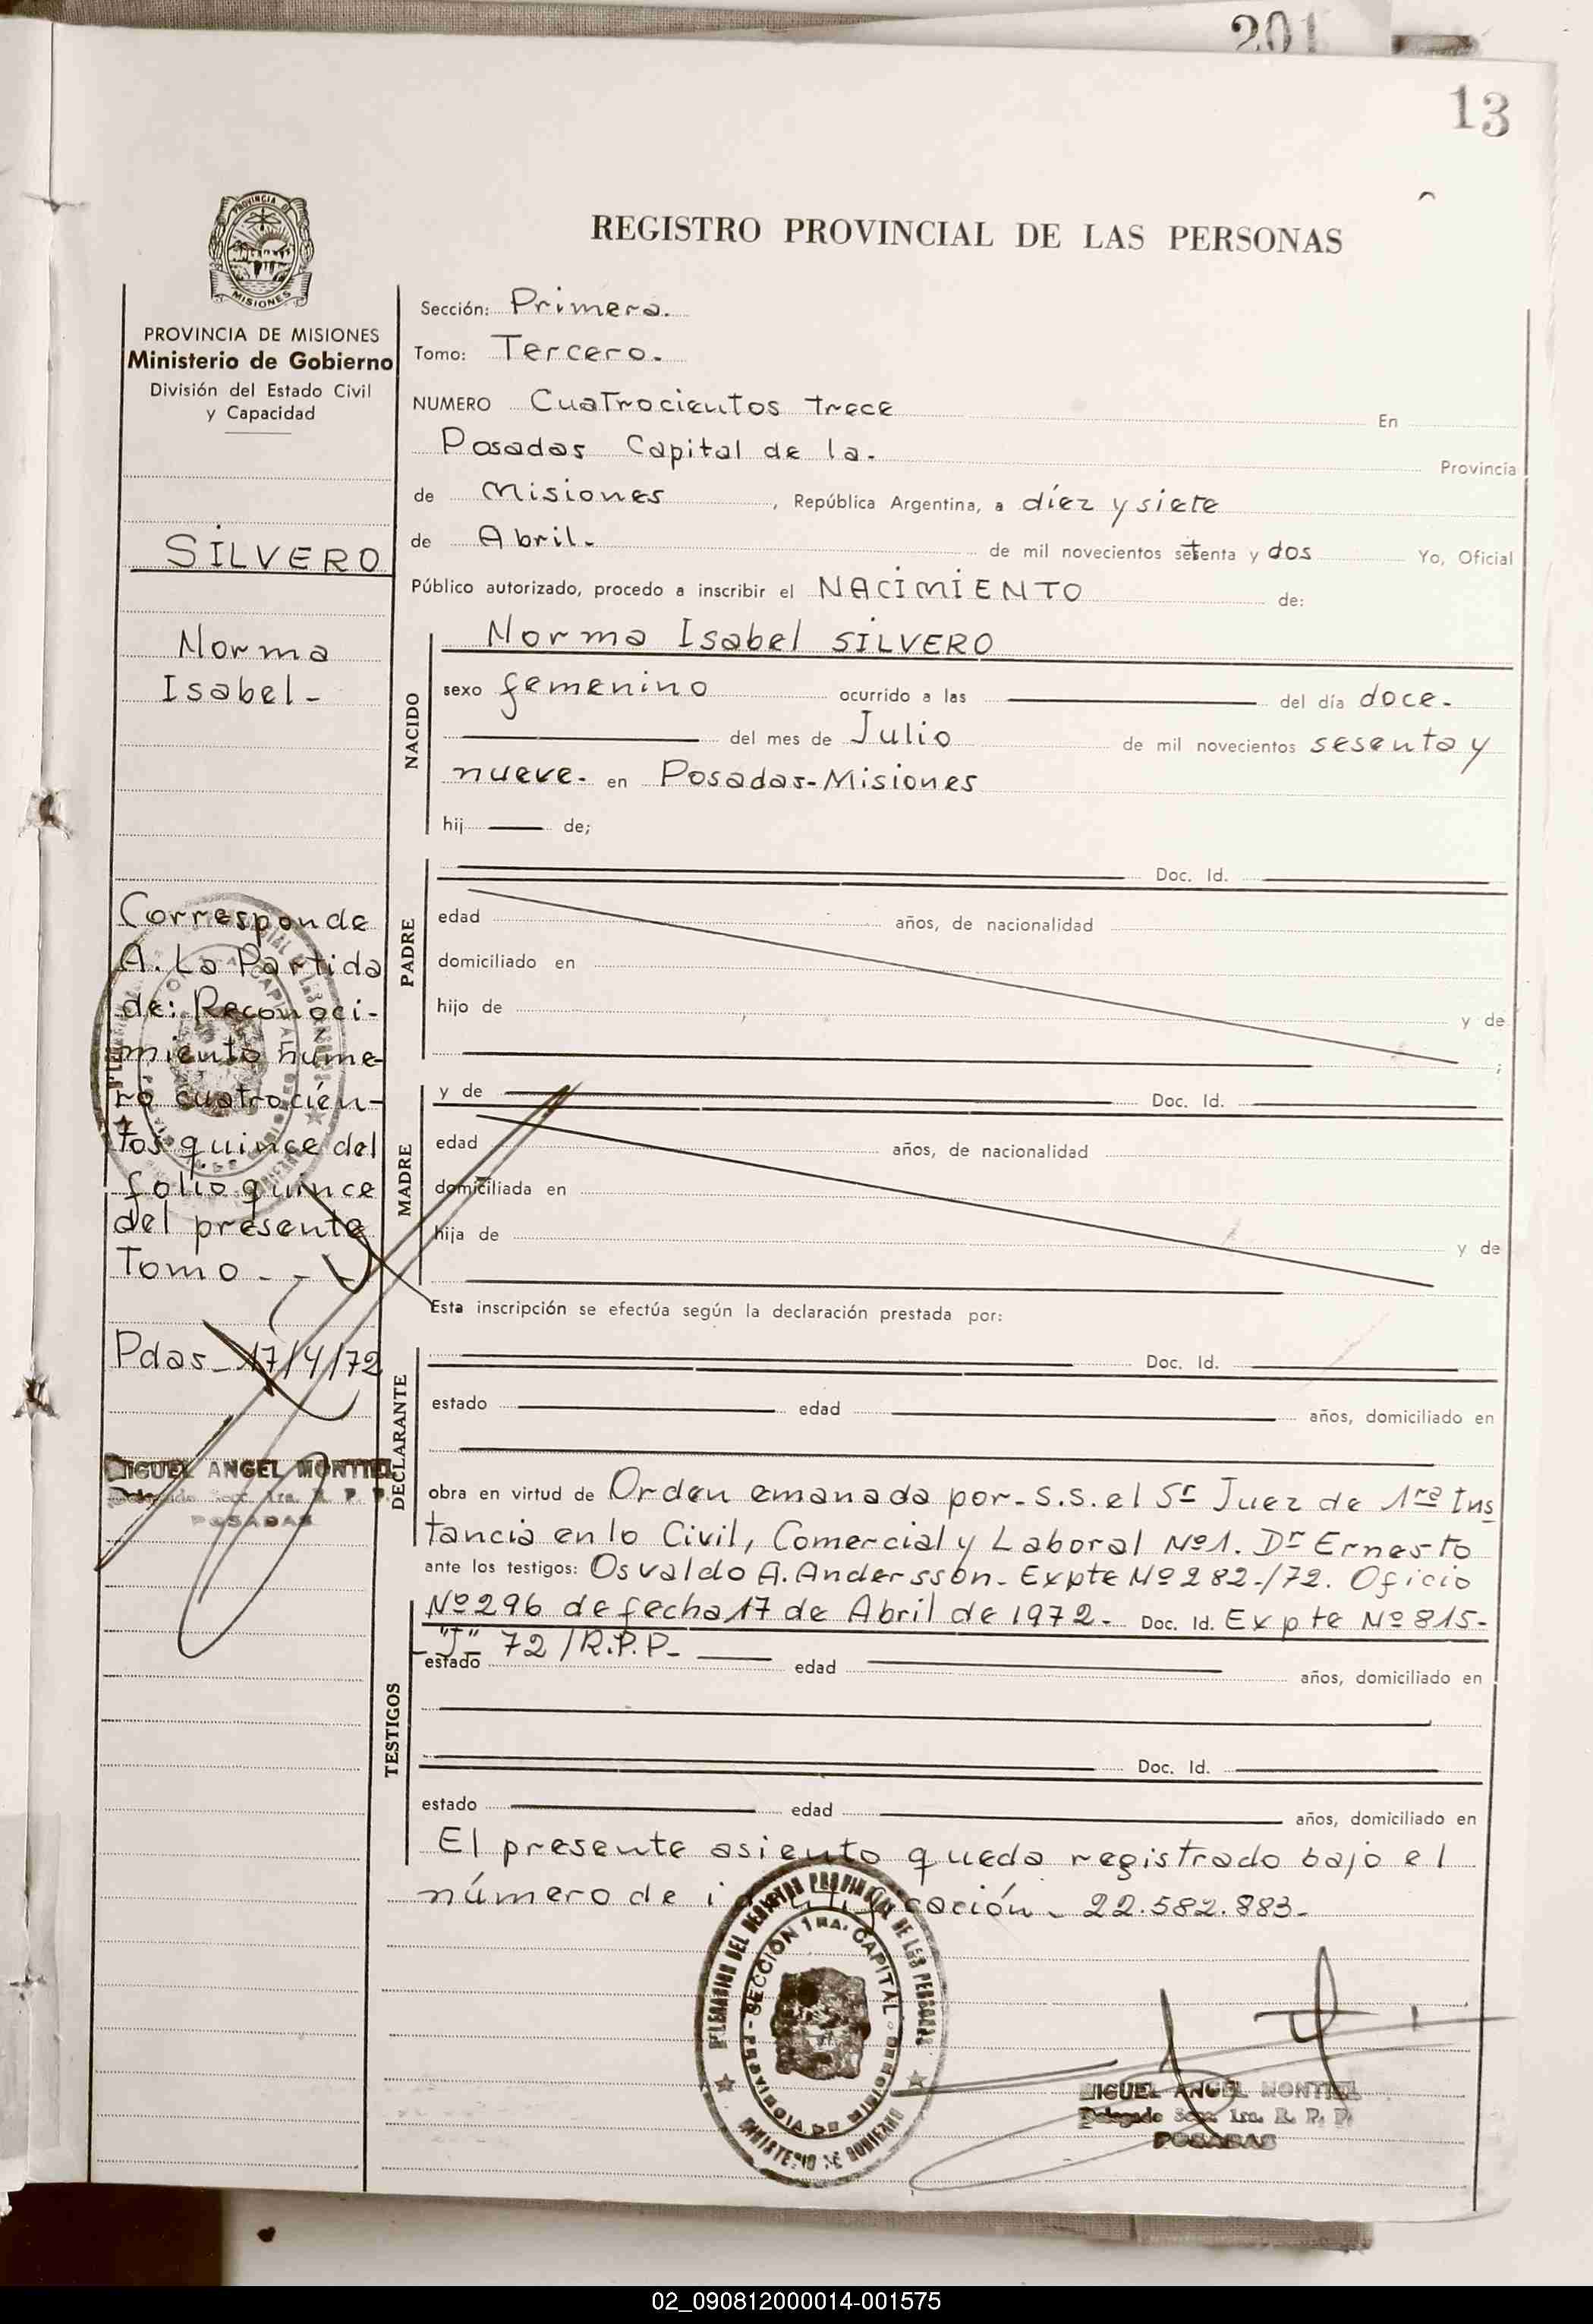 201
13
PROVINCIA DE
MISIONES
REGISTRO PROVINCIAL DE LAS PERSONAS
PROVINCIA DE MISIONES
Ministerio de Gobierno
División del Estado Civil
y Capacidad
SILVERO
Norma
Isabel-
Corresponde
A. La Partida
de: Reconoci-
miento nume-
ro cuatrocien-
tos quince del
folio quince
del presente
Tomo - -
Pdas- 17/4/72
MIGUEL ANGEL MONTIEL
Delegado Secc. 1ra. R. P. P.
POSADAS
Sección: Primera.
Tomo: Tercero.
NUMERO Cuatrocientos trece En
Posadas Capital de la. Provincia
de Misiones, República Argentina, a díez y siete
de Abril. de mil novecientos setenta y dos Yo, Oficial
Público autorizado, procedo a inscribir el NACIMIENTO de:
NACIDO
Norma Isabel SILVERO
sexo femenino ocurrido a las del día doce.
del mes de Julio de mil novecientos sesenta y
nueve. en Posadas-Misiones
hij de;
PADRE
Doc. Id.
edad años, de nacionalidad
domiciliado en
hijo de y de
;
MADRE
y de Doc. Id.
edad años, de nacionalidad
domiciliada en
hija de y de
Esta inscripción se efectúa según la declaración prestada por:
DECLARANTE
Doc. Id.
estado edad años, domiciliado en
obra en virtud de Orden emanada por-S.S. el Sr Juez de 1ra Ins
tancia en lo Civil, Comercial y Laboral Nº1. Dr Ernesto
ante los testigos: Osvaldo A. Andersson- Expte Nº 282-/72. Oficio
TESTIGOS
Nº296 de fecha 17 de Abril de 1972- Doc. Id. Expte Nº 815-
"J" 72/R.P.P-
estado edad años, domiciliado en
Doc. Id.
estado edad años, domiciliado en
El presente asiento queda registrado bajo el
número de identificación- 22.582.883-
DELEGACION DEL REGISTRO PROVINCIAL DE LAS PERSONAS
SECCION 1RA. CAPITAL
PROVINCIA DE MISIONES
MINISTERIO DE GOBIERNO
MIGUEL ANGEL MONTIEL
Delegado Secc. 1ra. R. P. P.
POSADAS
02_090812000014-001575